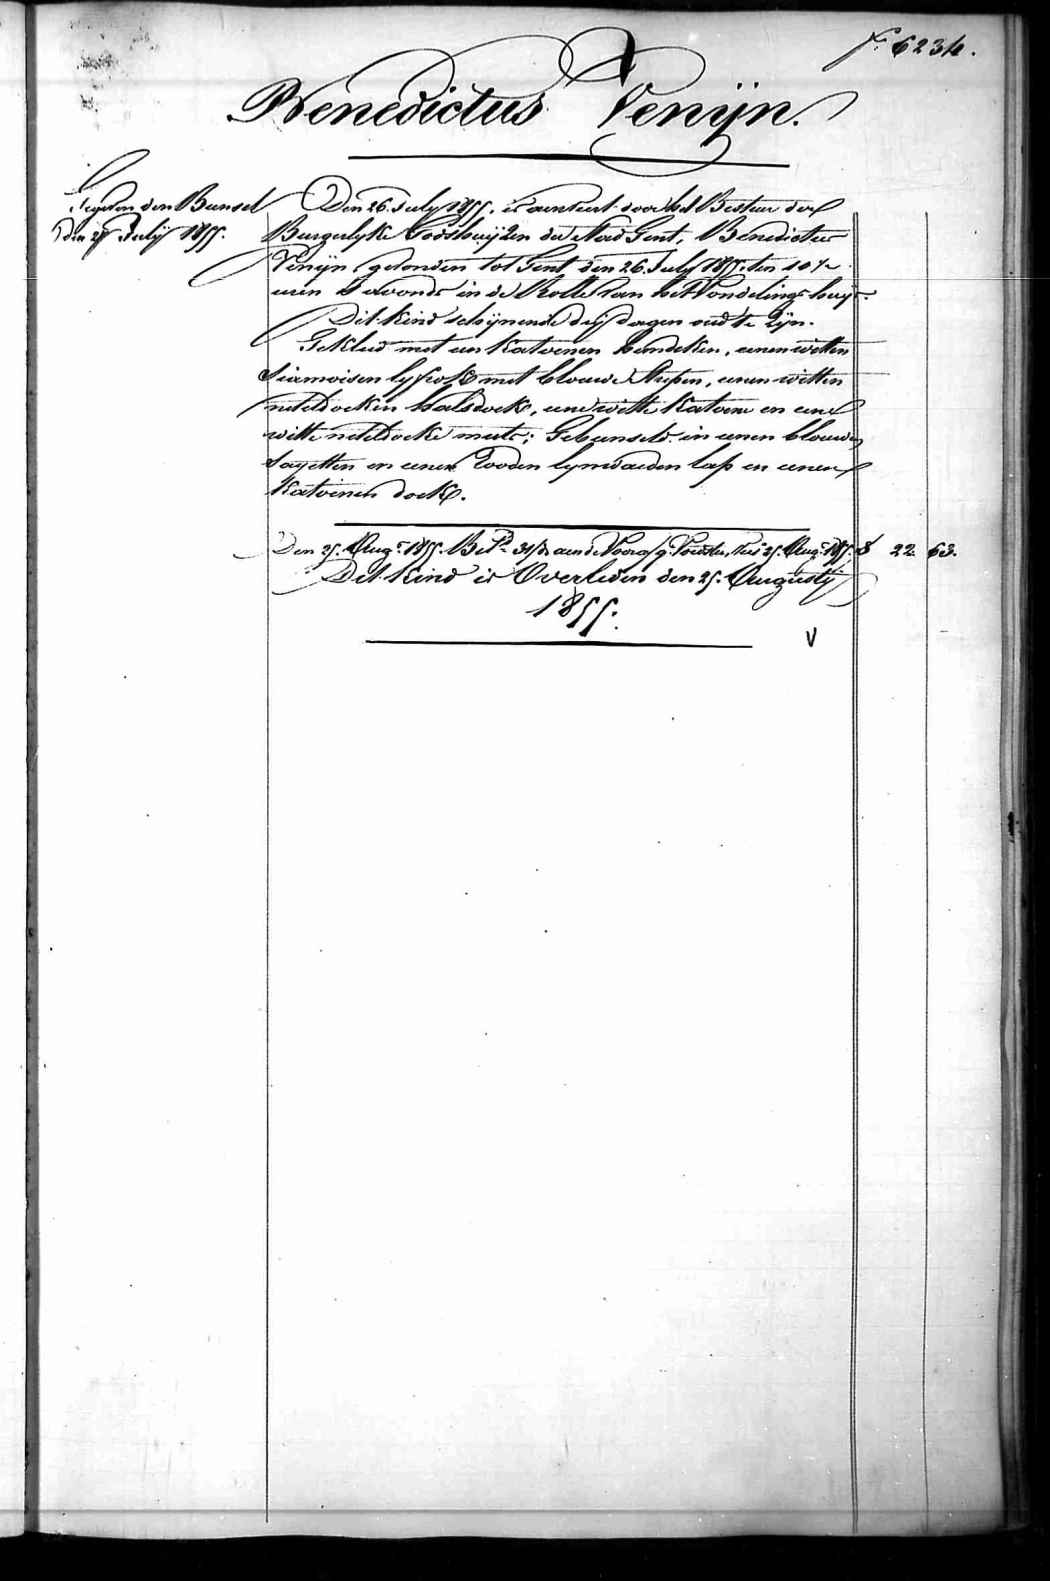 f.° 6234.
Benedictus Venijn.
den Bunsel
den 27 Julij 1855.
Den 26. July 1855. is aenveert door het Bestuer der
Burgerlyke Godshuyzen der stad Gent, Benedictus
Venijn, gevonden tot Gent, den 26. July 1855. ten 10 ½
uren 's avonds in de Rolle van het Vondelingshuys.
Dit kind schynende dry dagen oud te zyn.
Gekleed met een katoenen hemdeken, eenen witten
siamoisen lyfrok met blauwe strepen, eenen witten
neteldoeken halsdoek, eene witte katoene en eene
witte neteldoeke muts; Gebunseld in eenen blauwen
sayetten en eenen rooden lynwaeden lap en eenen
katoenen doek.
Den 25. Aug.t 1855. Bet.d aen de Voorsz. 25. Aug.t 1855. 22. 63.
Dit kind is Overleden den 25. Augusty
1855.
V